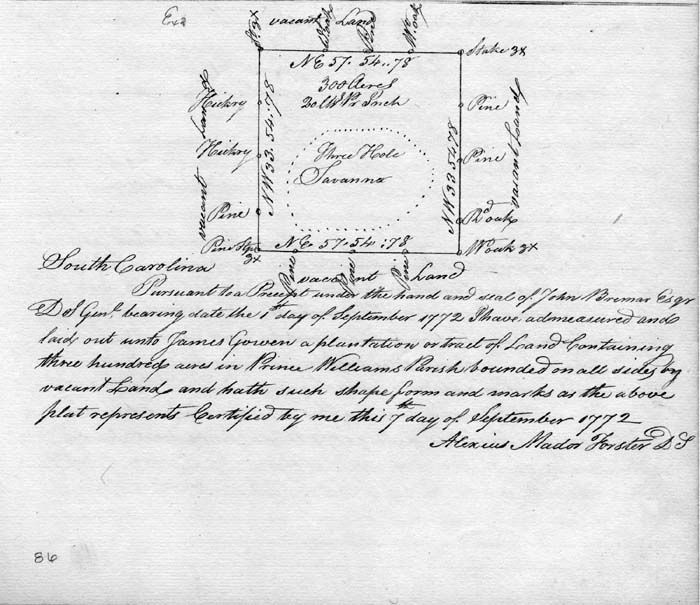 Exd
vacant Land
St 3x
Pine
Wt oak
Stake 3x
NE 57. 54..78
300 Acres
20 Ch Pr Inch
Hickry
Hickry
Pine
Pine Stpe 3x
vacant Land
NW 33. 54..78
Three Hole
Savanna
NW 33 54.78
Pine
Pine
Rd oak
W oak 3x
vacant Land
NE 57. 54..78
Pine
Pine
Pine
vacant Land
South Carolina
Pursuant to a Precept under the hand and seal of John Bremar Esqr
D S Genl. bearing date the 1st day of September 1772 I have admeasured and
laid out unto James Gowen a plantation or tract of Land Containing
three hundred acres in Prince Williams Parish bounded on all sides by
vacant Land and hath such shape form and marks as the above
plat represents Certified by me this 7th day of September 1772
Alexius Mador Forster D S
86